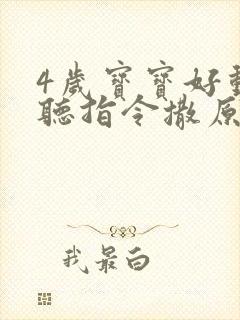 4歲寶寶好動
聽指令撒原
我最白